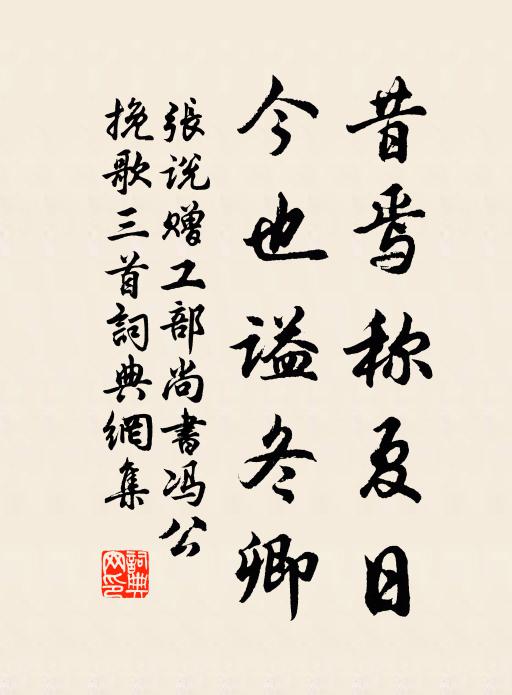 昔焉称夏日
今也谥冬卿
張说赠工部尚書冯公
挽歌三首詞典網集
詞典网印